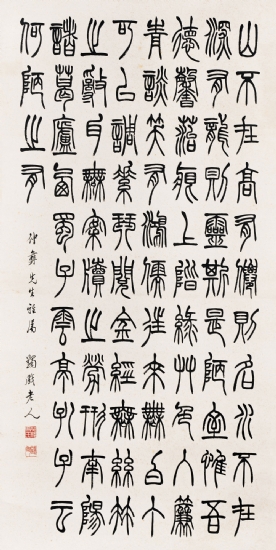 山不在高有僊則名水不在
深有龍則靈斯是陋室惟吾
德馨菭痕上階綠艸色入簾
青談笑有鴻儒往來無白丁
可以調素琴閱金經無絲竹
之亂耳無案牘之勞形南陽
諸葛廬西蜀子雲亭孔子云
何陋之有
先生雅屬 蠲戲老人